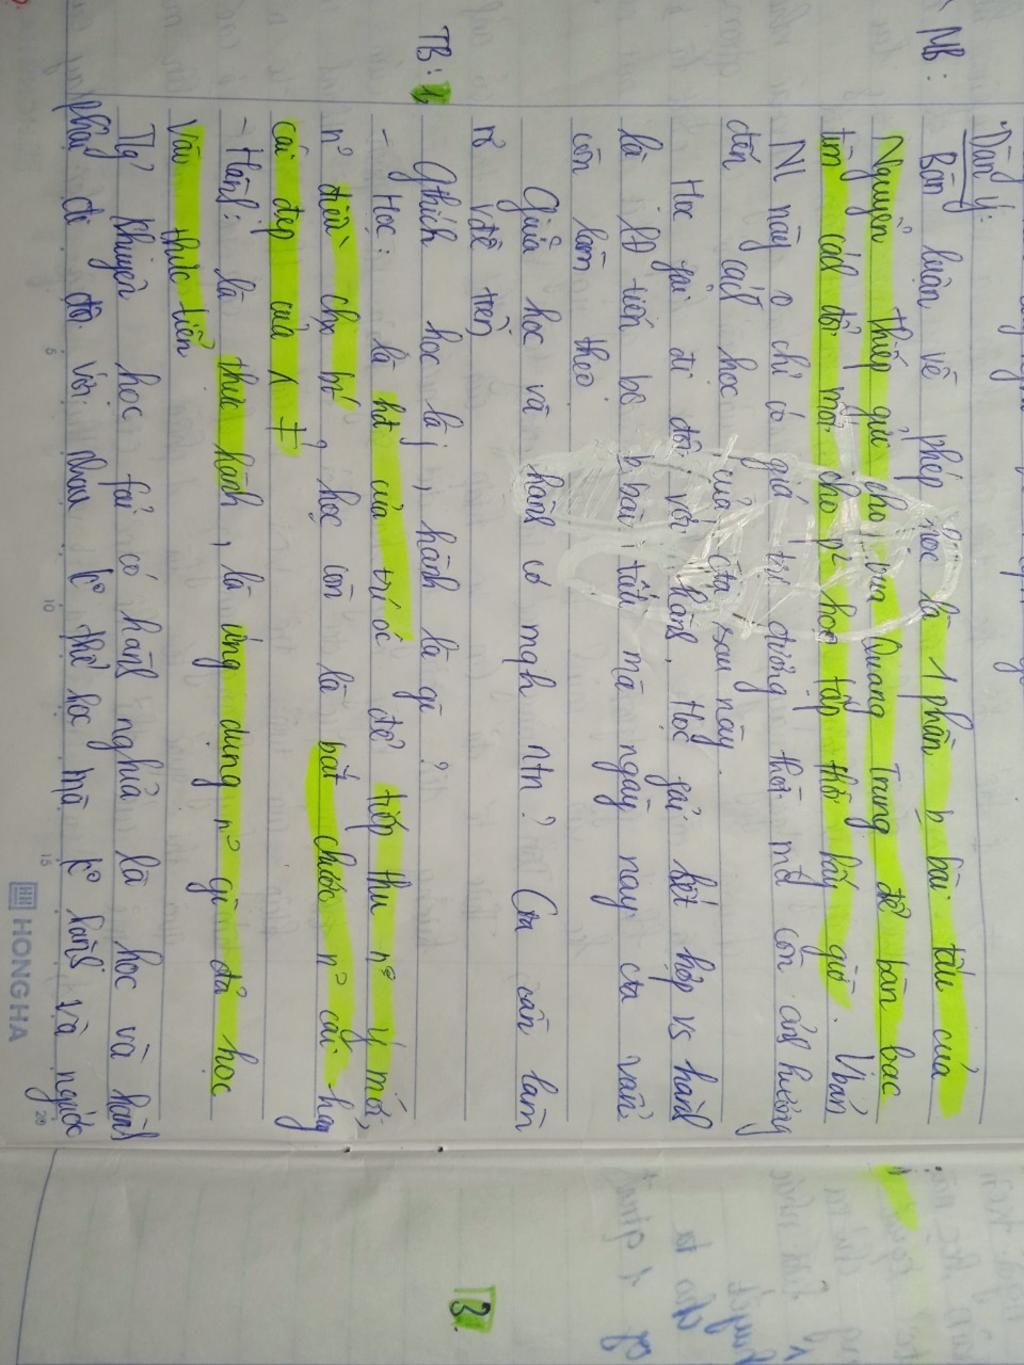 Dàn ý:
MB: Bàn luận về phép học là 1 phần b bài tấu của
Nguyễn Thiếp gửi cho vua Quang Trung để bàn bạc
tìm cách đổi mới cho p² học tập thời bấy giờ. Vbản
NL này o chỉ có giá trị đương thời mà còn ảnh hưởng
đến cách học của cta sau này.
Học fải đi đôi với hành. Học fải kết hợp vs hành
là lđ tiến bộ b bài tấu mà ngày nay cta vẫn
còn làm theo
Giữa học và hành có mqh ntn? Cta cần làm
rõ vđề trên
TB: 1 Gthích học là, hành là gì?
- Học: là hđ của trí óc để tiếp thu n° ý mới,
n° điều chx bt, học còn là bắt chước n° cái hay
cái đẹp của ≠
- Hành: là thực hành, là ứng dụng n° gì đã học
vào thực tiễn
Tg khuyên học fải có hành nghĩa là học và hành
phải đi đôi với nhau k° thể học mà k° hành và ngược
5
10
15
20
HONG HA
3.